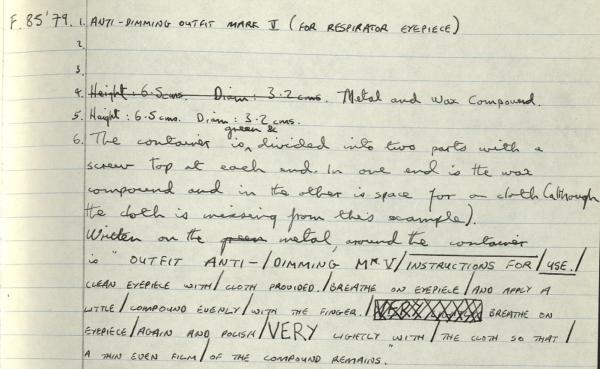 F. 85'79. 1. ANTI-DIMMING OUTFIT MARK V (FOR RESPIRATOR EYEPIECE)
2.
3.
4. Height: 6.5cms. Diam: 3.2 cms. Metal and Wax Compound.
5. Height: 6.5cms. Diam: 3.2 cms.
green &
6. The container is divided into two parts with a
screw top at each end. In one end is the wax
compound and in the other is space for a cloth (although
the cloth is missing from this example).
Written on the green metal, around the container
is "OUTFIT ANTI-/DIMMING MK. V/INSTRUCTIONS FOR/USE./
CLEAN EYEPIECE WITH/CLOTH PROVIDED./BREATHE ON EYEPIECE/AND APPLY A
LITTLE/COMPOUND EVENLY/WITH THE FINGER./VERY BREATHE ON
EYEPIECE/AGAIN AND POLISH/VERY LIGHTLY WITH/THE CLOTH SO THAT/
A THIN EVEN FILM/OF THE COMPOUND REMAINS.